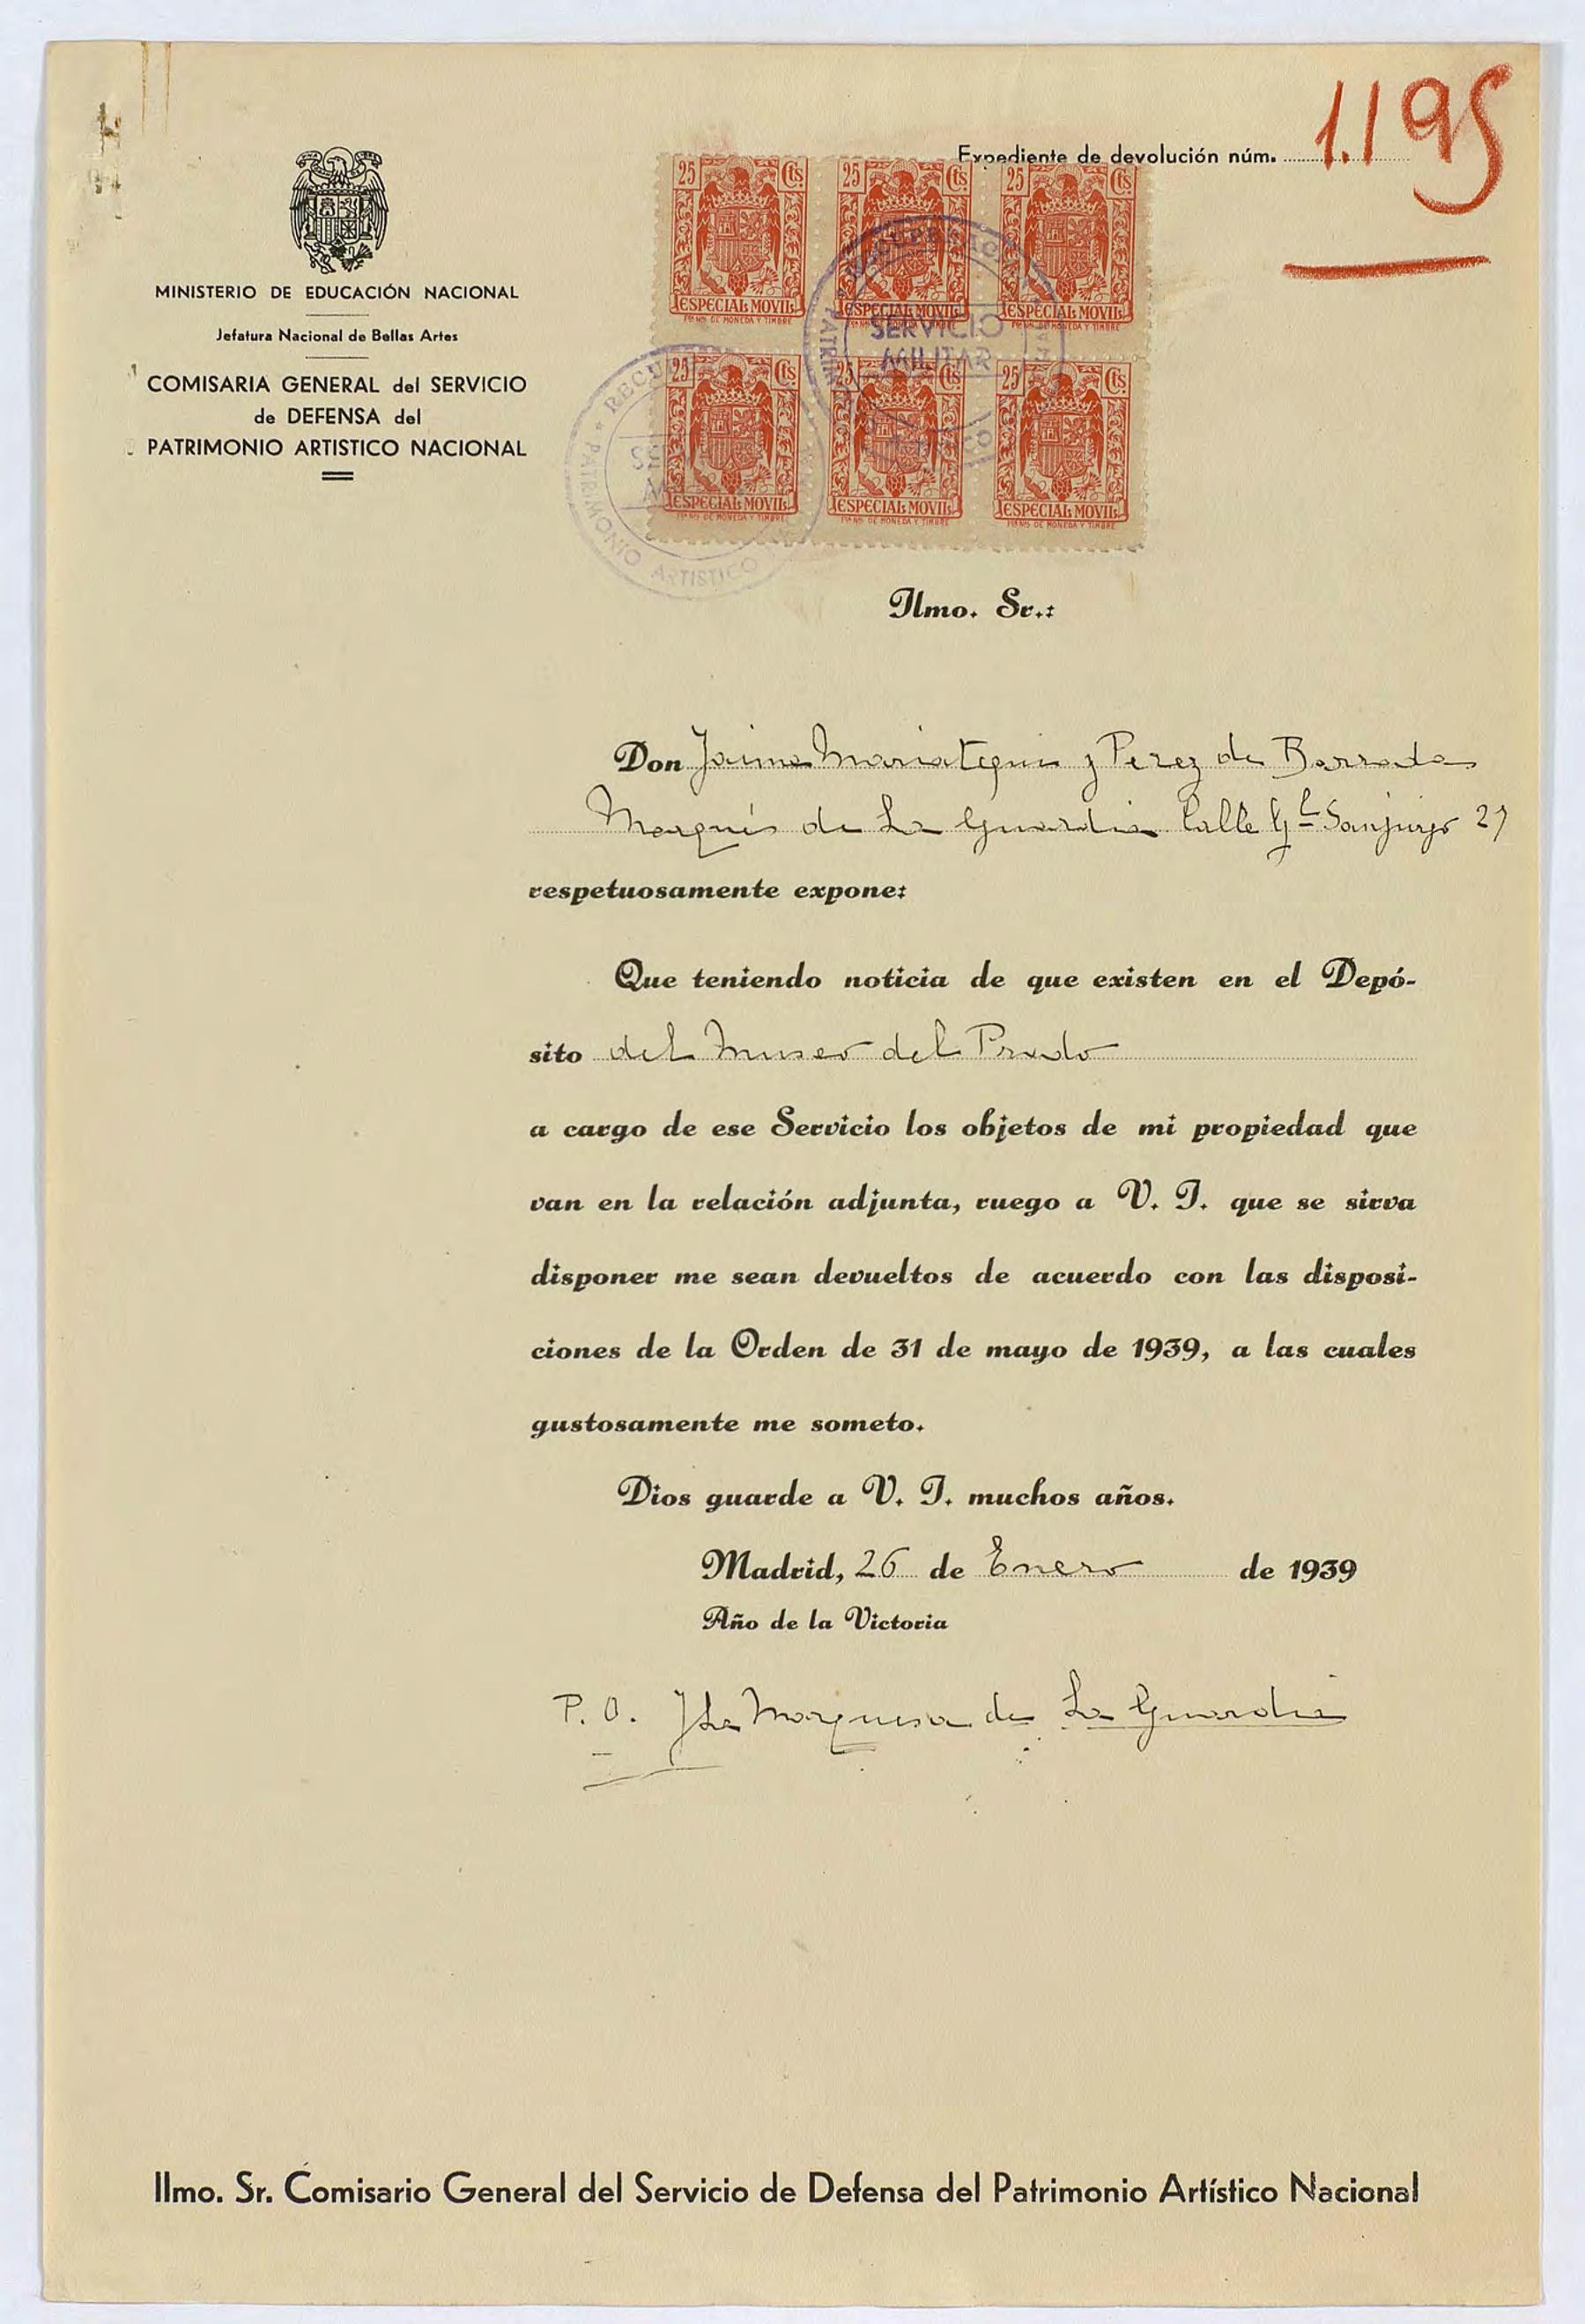 Expediente de devolución núm. 1.195
MINISTERIO DE EDUCACIÓN NACIONAL
Jefatura Nacional de Bellas Artes
COMISARIA GENERAL del SERVICIO
de DEFENSA del
PATRIMONIO ARTISTICO NACIONAL
25 Cts. 25 Cts. 25 Cts.
ESPECIAL MOVIL ESPECIAL MOVIL ESPECIAL MOVIL
SERVICIO
MILITAR
25 Cts. 25 Cts. 25 Cts.
ESPECIAL MOVIL ESPECIAL MOVIL ESPECIAL MOVIL
PATRIMONIO ARTISTICO
Ilmo. Sr.:
Don Jaime Mariategui y Perez de Barradas
Marqués de La Guardia Calle Gl Sanjurjo 27
respetuosamente expone:
Que teniendo noticia de que existen en el Depó-
sito del Museo del Prado
a cargo de ese Servicio los objetos de mi propiedad que
van en la relación adjunta, ruego a V. I. que se sirva
disponer me sean devueltos de acuerdo con las disposi-
ciones de la Orden de 31 de mayo de 1939, a las cuales
gustosamente me someto.
Dios guarde a V. I. muchos años.
Madrid, 26 de Enero de 1939
Año de la Victoria
P. O. La Marquesa de La Guardia
Ilmo. Sr. Comisario General del Servicio de Defensa del Patrimonio Artístico Nacional